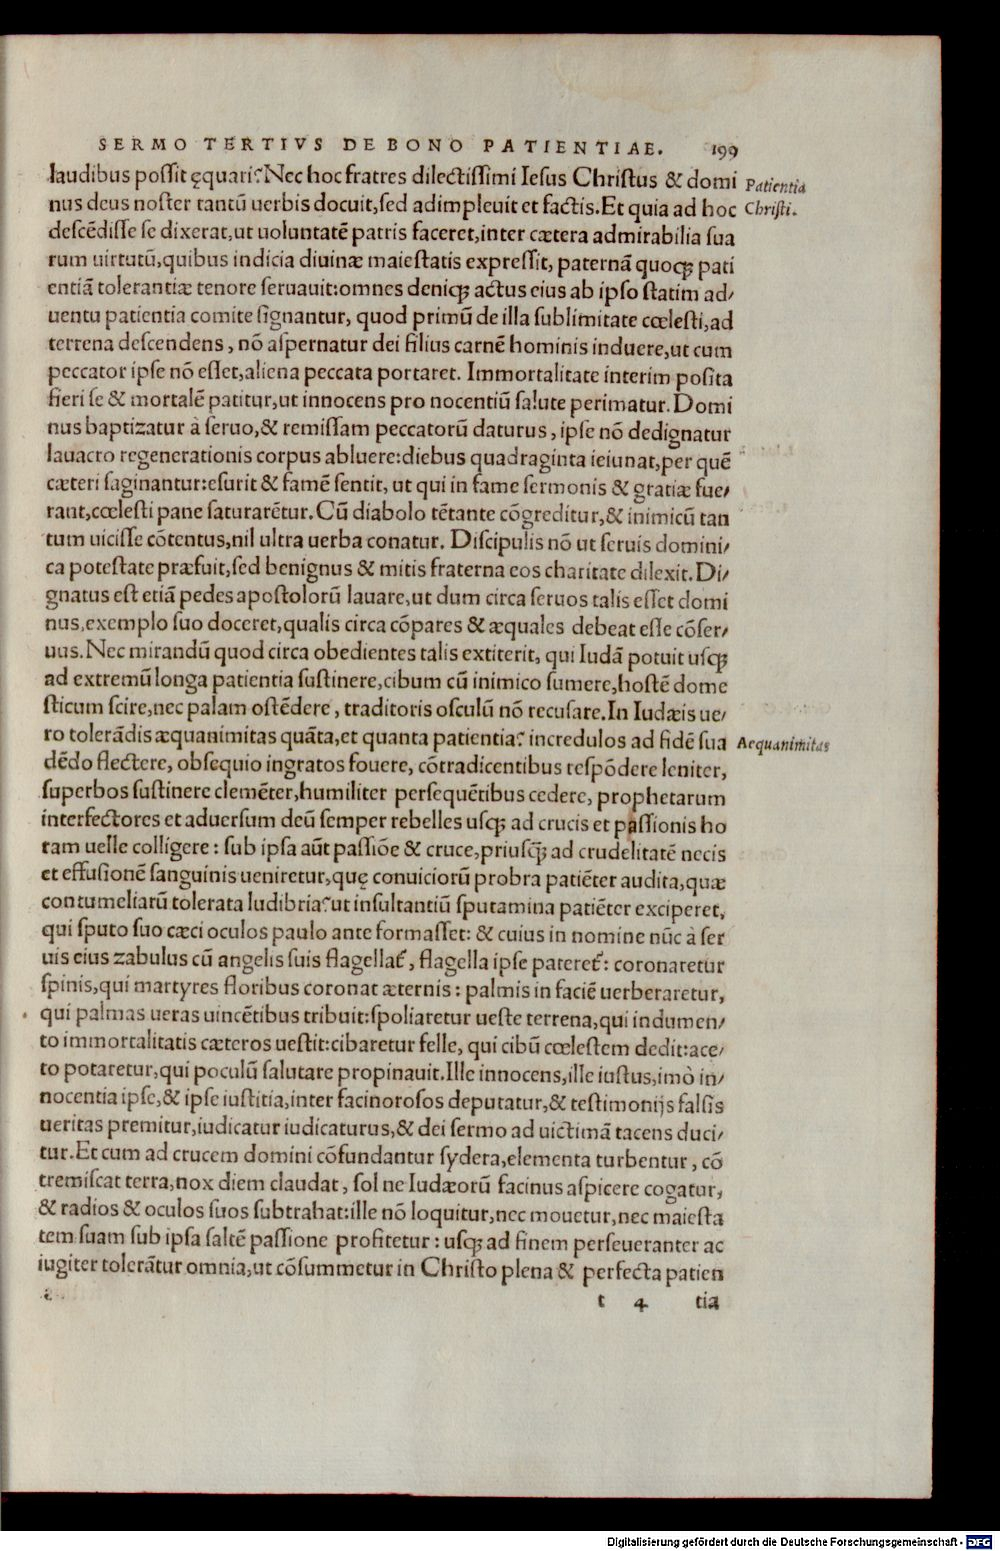 SERMO TERTIVS DE BONO PATIENTIAE. 199
laudibus possit ęquari? Nec hoc fratres dilectissimi Iesus Christus & domi
Patientia
nus deus noster tantũ uerbis docuit, sed adimpleuit et factis. Et quia ad hoc
Christi.
descẽdisse se dixerat, ut uoluntatẽ patris faceret, inter cætera admirabilia sua
rum uirtutũ, quibus indicia diuinæ maiestatis expressit, paternã quoqꝫ pati
entiã tolerantiæ tenore seruauit: omnes deniqꝫ actus eius ab ipso statim ad/
uentu patientia comite signantur, quod primũ de illa sublimitate cœlesti, ad
terrena descendens, nõ aspernatur dei filius carnẽ hominis induere, ut cum
peccator ipse nõ esset, aliena peccata portaret. Immortalitate interim posita
fieri se & mortalẽ patitur, ut innocens pro nocentiũ salute perimatur. Domi
nus baptizatur à seruo, & remissam peccatorũ daturus, ipse nõ dedignatur
lauacro regenerationis corpus abluere: diebus quadraginta ieiunat, per quẽ
cæteri saginantur: esurit & famẽ sentit, ut qui in fame sermonis & gratiæ fue/
rant, cœlesti pane saturarẽtur. Cũ diabolo tẽtante cõgreditur, & inimicũ tan
tum uicisse cõtentus, nil ultra uerba conatur. Discipulis nõ ut seruis domini/
ca potestate præfuit, sed benignus & mitis fraterna eos charitate dilexit. Di/
gnatus est etiã pedes apostolorũ lauare, ut dum circa seruos talis esset domi
nus, exemplo suo doceret, qualis circa cõpares & æquales debeat esse cõser/
uus. Nec mirandũ quod circa obedientes talis extiterit, qui Iudã potuit usqꝫ
ad extremũ longa patientia sustinere, cibum cũ inimico sumere, hostẽ dome
sticum scire, nec palam ostẽdere, traditoris osculũ nõ recusare. In Iudæis ue/
ro tolerãdis æquanimitas quãta, et quanta patientia? incredulos ad fidẽ sua
Aequanimitas
dẽdo flectere, obsequio ingratos fouere, cõtradicentibus respõdere leniter,
superbos sustinere clemẽter, humiliter persequẽtibus cedere, prophetarum
interfectores et aduersum deũ semper rebelles usqꝫ ad crucis et passionis ho
ram uelle colligere: sub ipsa aũt passiõe & cruce, priusq̃ꝫ ad crudelitatẽ necis
et effusionẽ sanguinis ueniretur, quę conuiciorũ probra patiẽter audita, quæ
contumeliarũ tolerata ludibria? ut insultantiũ sputamina patiẽter exciperet,
qui sputo suo cæci oculos paulo ante formasset: & cuius in nomine nũc à ser
uis eius zabulus cũ angelis suis flagellat᷑, flagella ipse pateret᷑: coronaretur
spinis, qui martyres floribus coronat æternis: palmis in faciẽ uerberaretur,
qui palmas ueras uincẽtibus tribuit: spoliaretur ueste terrena, qui indumen/
to immortalitatis cæteros uestit: cibaretur felle, qui cibũ cœlestem dedit: ace/
to potaretur, qui poculũ salutare propinauit. Ille innocens, ille iustus, imò in/
nocentia ipse, & ipse iustitia, inter facinorosos deputatur, & testimonijs falsis
ueritas premitur, iudicatur iudicaturus, & dei sermo ad uictimã tacens duci/
tur. Et cum ad crucem domini cõfundantur sydera, elementa turbentur, cõ
tremiscat terra, nox diem claudat, sol ne Iudæorũ facinus aspicere cogatur,
& radios & oculos suos subtrahat: ille nõ loquitur, nec mouetur, nec maiesta
tem suam sub ipsa saltẽ passione profitetur: usqꝫ ad finem perseueranter ac
iugiter tolerãtur omnia, ut cõsummetur in Christo plena & perfecta patien
t 4 tia
Digitalisierung gefördert durch die Deutsche Forschungsgemeinschaft - DFG